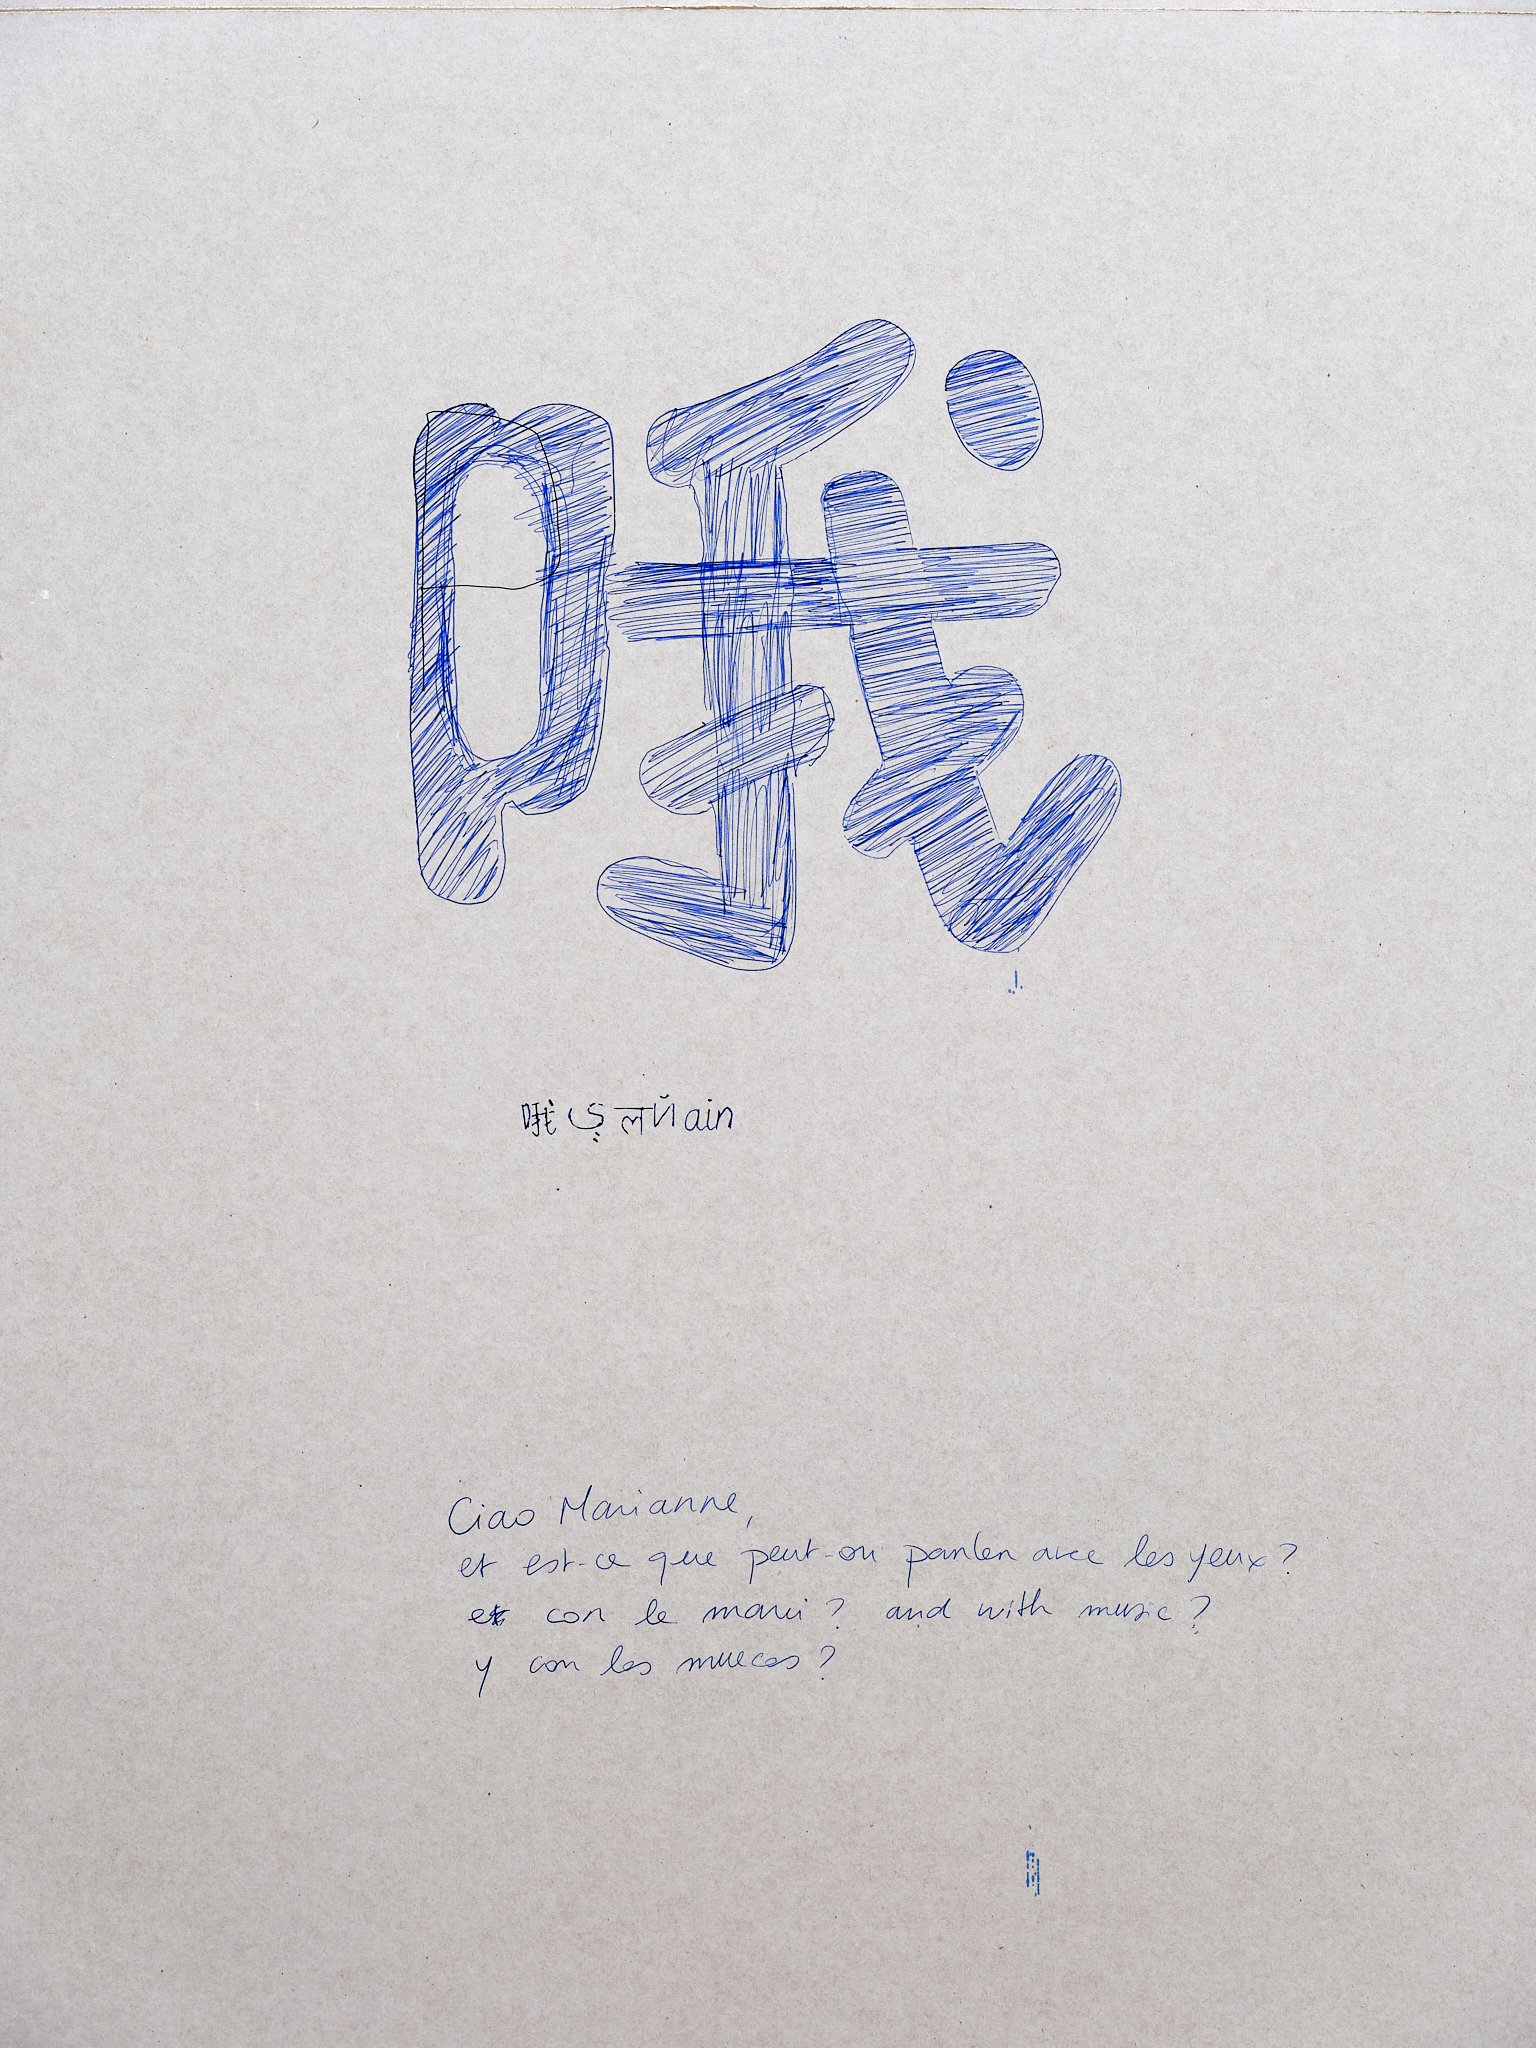 哦
哦 ي लйain
Ciao Marianne,
et est-ce que peut-on parler avec les yeux?
con le mani? and with music?
y con las muecas?